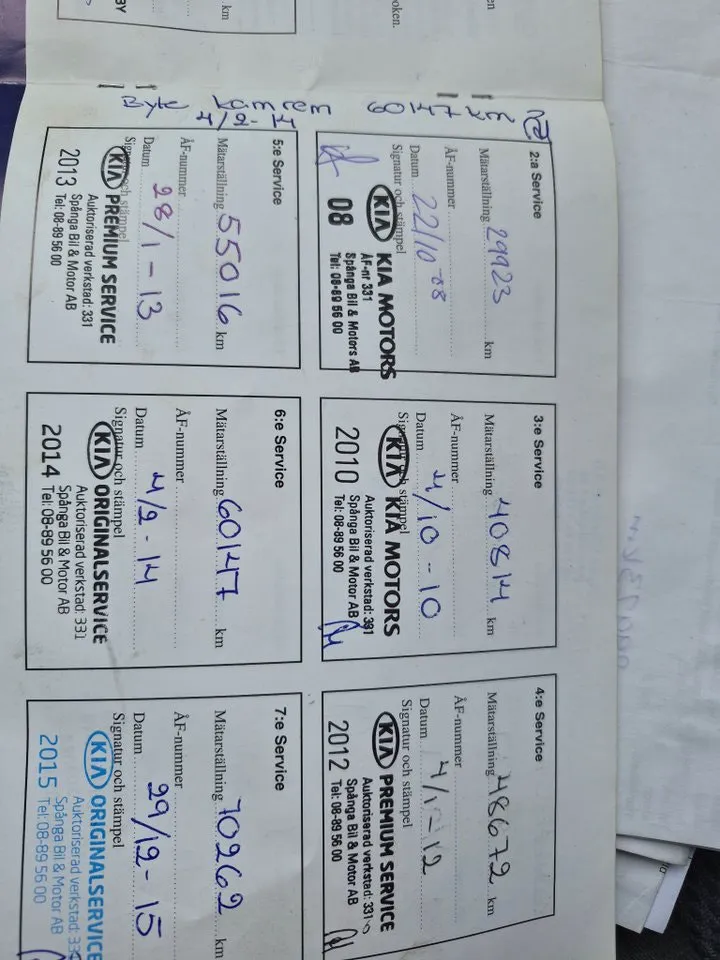 BY
km
oken.
en
Byte kamrem 60147 km
4/2-14
2:a Service
Mätarställning 29923 km
ÅF-nummer
Datum 22/10-08
Signatur och stämpel
KIA KIA MOTORS
08 ÅF-nr 331
Spånga Bil & Motors AB
Tel: 08-89 56 00
3:e Service
Mätarställning 40814 km
ÅF-nummer
Datum 4/10-10
Signatur och stämpel
KIA KIA MOTORS
2010 Auktoriserad verkstad: 331
Spånga Bil & Motor AB
Tel: 08-89 56 00
4:e Service
Mätarställning 48672 km
ÅF-nummer
Datum 4/1-12
Signatur och stämpel
KIA PREMIUM SERVICE
2012 Auktoriserad verkstad: 331
Spånga Bil & Motor AB
Tel: 08-89 56 00
5:e Service
Mätarställning 55016 km
ÅF-nummer
Datum 28/1-13
Signatur och stämpel
KIA PREMIUM SERVICE
2013 Auktoriserad verkstad: 331
Spånga Bil & Motor AB
Tel: 08-89 56 00
6:e Service
Mätarställning 60147 km
ÅF-nummer
Datum 4/2-14
Signatur och stämpel
KIA ORIGINALSERVICE
2014 Auktoriserad verkstad: 331
Spånga Bil & Motor AB
Tel: 08-89 56 00
7:e Service
Mätarställning 70262 km
ÅF-nummer
Datum 29/12-15
Signatur och stämpel
KIA ORIGINALSERVICE
2015 Auktoriserad verkstad: 331
Spånga Bil & Motor AB
Tel: 08-89 56 00